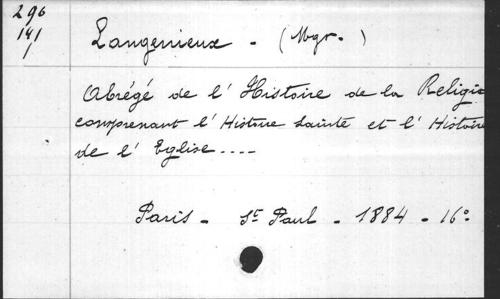 296
141
1
Langenieux - (Mgr.)
Abrégé de l' Histoire de la Religio
comprenant l' Histoire Sainte et l' Histoire
de l' Eglise ....
Paris - St Paul - 1884 - 16°